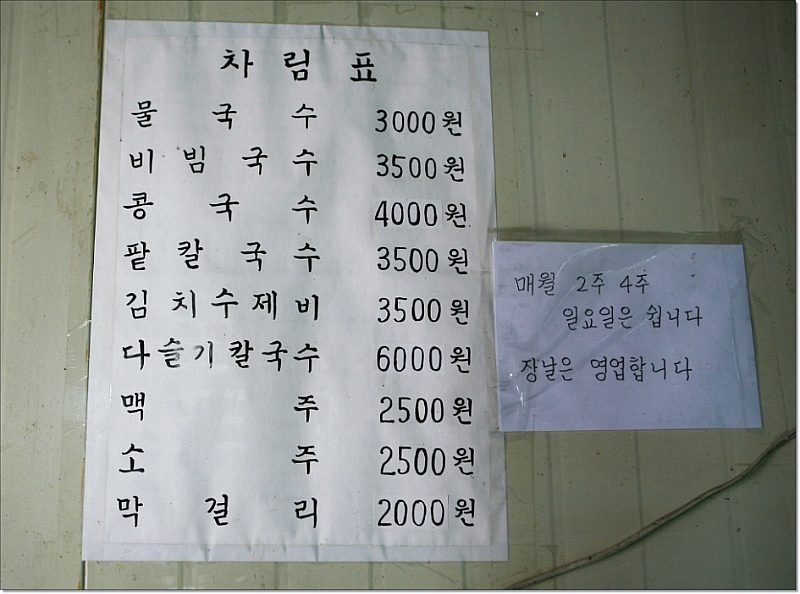 차림표
물국수 3000원
비빔국수 3500원
콩국수 4000원
팥칼국수 3500원
김치수제비 3500원
다슬기칼국수 6000원
맥주 2500원
소주 2500원
막걸리 2000원
매월 2주 4주
일요일은 쉽니다
장날은 영업합니다